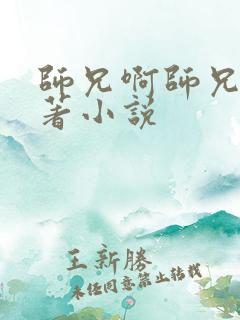 師兄啊師兄
著小説
王新勝
未經同意禁止轉載